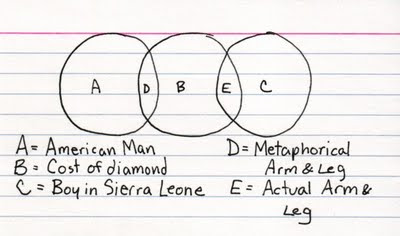 A D B E C
A = American Man
B = Cost of diamond
C = Boy in Sierra Leone
D = Metaphorical
Arm & Leg
E = Actual Arm &
Leg